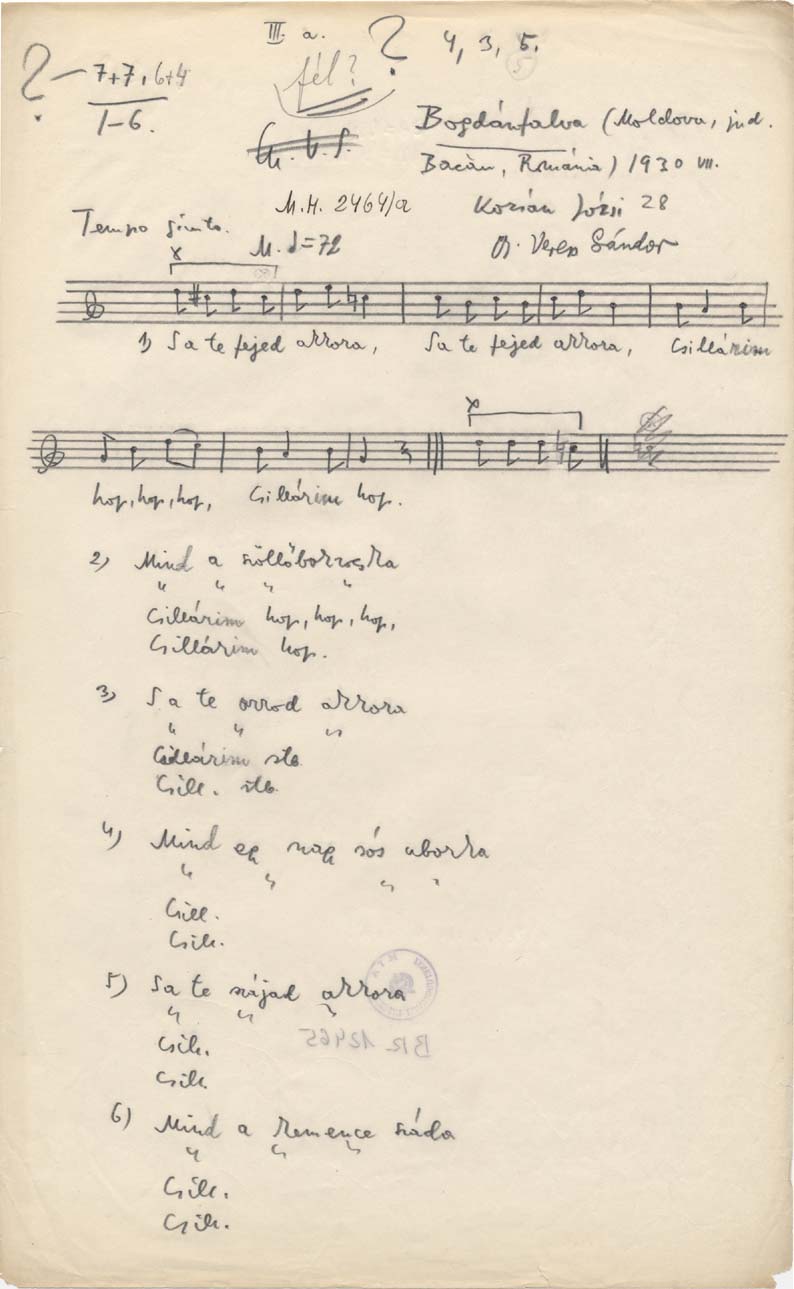 III. a. ? 4, 3, 5.
5
? 7+7, 6+4
1–6.
fél?
Bogdánfalva (Moldova, jud.
Bacău, Románia) 1930 VII.
M.H. 2464/a
Kozsán Józsi 28
Tempo giusto.
M. ♩=72
Dr. Veress Sándor
x
1) Sa te fejed akkora, Sa te fejed akkora, Csillárim
x
hop, hop, hop, Csillárim hop.
2) Mind a szöllőborzocska
" " " "
Csillárim hop, hop, hop,
Csillárim hop.
3) Sa te orrod akkora
" " "
Csillárim stb.
Csill. stb.
4) Mind egy nagy sós uborka
" " " "
Csill.
Csill.
5) Sa te szájad akkora
" " "
Csill.
Csill.
BR 12465
6) Mind a kemence száda
" " "
Csill.
Csill.